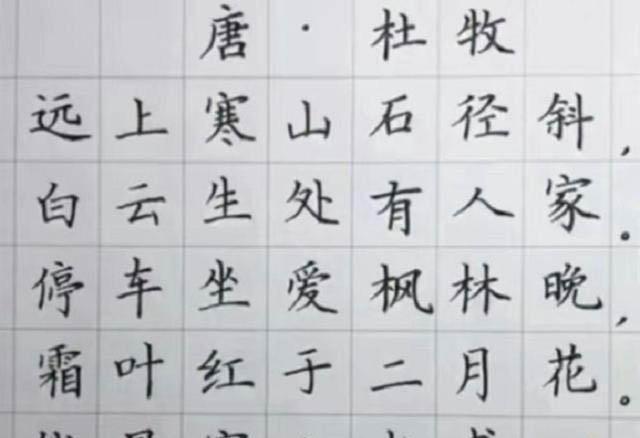 唐·杜牧
远上寒山石径斜，
白云生处有人家。
停车坐爱枫林晚，
霜叶红于二月花。